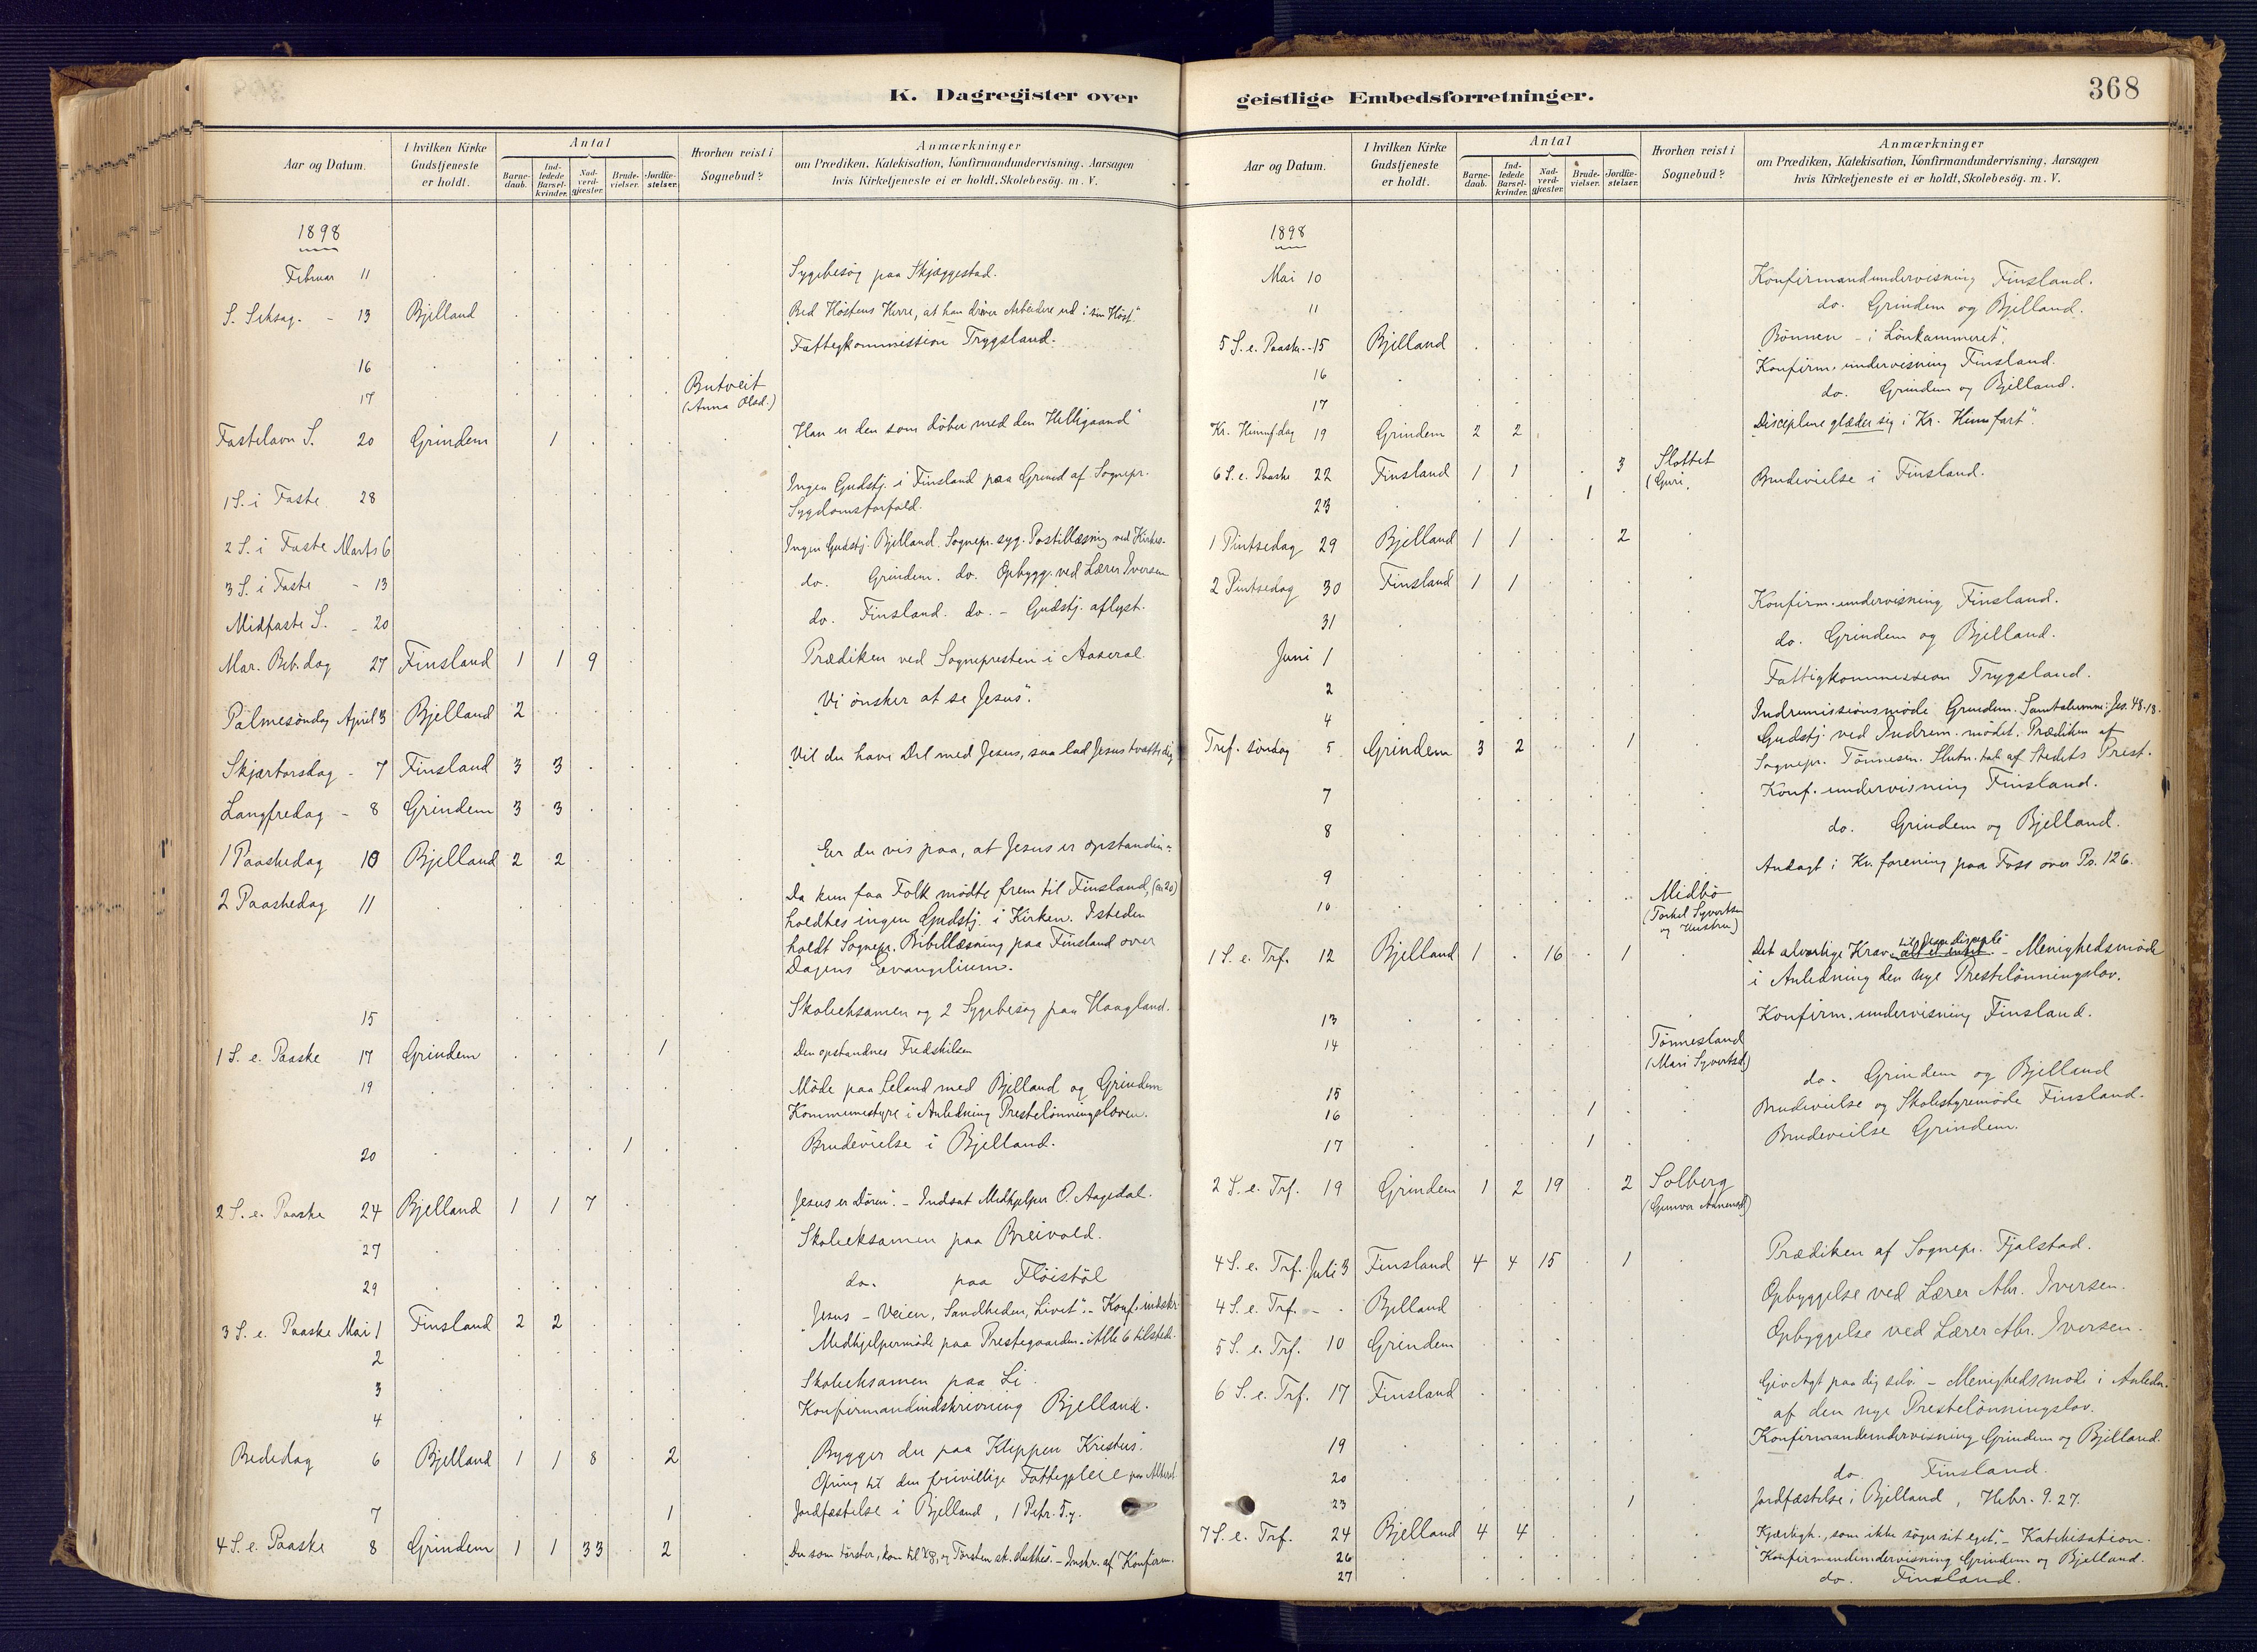 K. Dagregister over
Aar og Datum.
I hvilken Kirke Gudstjeneste er holdt.
Antal
Barne-daab.
Ind-ledede Barsel-kvinder.
Nad-verd-gjæster.
Brude-vielser.
Jordfæ-stelser.
Hvorhen reist i Sognebud?
Anmærkninger
om Prædiken, Katekisation, Konfirmandundervisning, Aarsagen
hvis Kirketjeneste ei er holdt, Skolebesög. m. V.
1898
Februar 11 Sygebesøg paa Skjæggestad.
S. Seksag. - 13 Bjelland "Bed Høstens Herre, at han driver Arbeidere ud i sin Høst"
16 Fattigkommission Trygsland.
17 Butveit
(Anna Olsd.)
Fastelavn S. 20 Grindem 1 "Han er den som døber med den Helligaand"
1 S. i Faste 28 Ingen Gudstj. i Finsland paa Grund af Sognepr.
Sygdomsforfald.
2 S. i Faste Marts 6 Ingen Gudstj. Bjelland. Sognepr. syg. Postillæsning ved Kirkes.
3 S. i Faste - 13 do. Grindem. do. Opbygg. ved Lærer Iversen
Midfaste S. - 20 do. Finsland. do. - Gudstj. aflyst.
Mar. Beb. dag 27 Finsland 1 1 9 Prædiken ved Sognepresten i Aaseral
Palmesøndag April 3 Bjelland 2 "Vi ønsker at se Jesus".
Skjærtorsdag - 7 Finsland 3 3 "Vil du have Del med Jesus, saa lad Jesus tvætte dig
Langfredag - 8 Grindem 3 3
1 Paaskedag 10 Bjelland 2 2 "Er du vis paa, at Jesus er opstanden"
2 Paaskedag 11 Da kun faa Folk mødte frem til Finsland, (ca 20)
holdtes ingen Gudstj. i Kirken. Isteden
holdt Sognepr. Bibellæsning paa Finsland over
Dagens Evangelium.
15 Skoleeksamen og 2 Sygebesøg paa Haagland.
1 S. e. Paaske 17 Grindem 1 Den opstandnes Fredshilsen
19 Møde paa Leland med Bjelland og Grindem
Kommunestyre i Anledning Prestelønningsloven.
20 1 Brudevielse i Bjelland.
2 S. e. Paaske 24 Bjelland 1 1 7 "Jesus er Døren". - Indsat Medhjelper O. Aagedal.
27 Skoleeksamen paa Breivold.
29 do. paa Fløistøl
3 S. e. Paaske Mai 1 Finsland 2 2 "Jesus - Veien, Sandheden, Livet". - Konf. indskr.
2 Medhjelpermøde paa Prestegaarden. Alle 6 tilstede.
3 Skoleeksamen paa Li.
4 Konfirmandindskrivning Bjelland.
Bededag 6 Bjelland 1 1 8 2 "Bygger du paa Klippen Kristus".
Ofring til den frivillige Fattigpleie paa Alteret
7 1 Jordfæstelse i Bjelland, 1 Petr. 5,7.
4 S. e. Paaske 8 Grindem 1 1 33 2 "Du som tørster, kom til Kg, og Tørsten sk. slukkes". - Instr. af Konfirm.
geistlige Embedsforretninger.
368
Aar og Datum.
I hvilken Kirke Gudstjeneste er holdt.
Antal
Barne-daab.
Ind-ledede Barsel-kvinder.
Nad-verd-gjæster.
Brude-vielser.
Jordfæ-stelser.
Hvorhen reist i Sognebud?
Anmærkninger
om Prædiken, Katekisation, Konfirmandundervisning, Aarsagen
hvis Kirketjeneste ei er holdt, Skolebesög. m. V.
1898
Mai 10 Konfirmandundervisning Finsland.
11 do. Grindem og Bjelland.
5 S. e. Paaske - 15 Bjelland "Bønnen - i Lønkammeret".
16 Konfirm. undervisning Finsland.
17 do. Grindem og Bjelland.
Kr. Himmf.dag 19 Grindem 2 2 "Disciplene glæder sig i Kr. Himmfart".
6 S. e. Paaske 22 Finsland 1 1 3 Slottet
(Guri.
23 1 Brudevielse i Finsland.
1 Pintsedag 29 Bjelland 1 1 2
2 Pintsedag 30 Finsland 1 1
31 Konfirm. undervisning Finsland.
Juni 1 do. Grindem og Bjelland.
2 Fattigkommission Trygsland.
4 Indremissionsmøde Grindem. Samtaleemne: Jes. 48.18.
Tref. søndag 5 Grindem 3 2 1 Gudstj. ved Indrem. mødet. Prædiken af
Sognepr. Tønnesen. Slutn. tale af Stedets Prest.
7 Konf. undervisning Finsland.
8 do. Grindem og Bjelland.
9 Andagt i Kv. forening paa Foss over Ps. 126.
10 Midbø
(Torkel Syvertsen
og Hustru)
1 S. e. Trf. 12 Bjelland 1 16 1 "Det alvorlige Krav til Jesu disciple - Menighedsmøde
i Anledning den nye Prestelønningslov.
13 Konfirm. undervisning Finsland.
14 Tønnesland
(Mari Syvertsd.)
15 do. Grindem og Bjelland
16 1 Brudevielse og Skolestyremøde Finsland.
17 1 Brudevielse Grindem.
2 S. e. Trf. 19 Grindem 1 2 19 2 Solberg
(Gunvor Aanensd)
4 S. e. Trf. Juli 3 Finsland 4 4 15 1 Prædiken af Sognepr. Fjalstad.
4 S. e. Trf. - Bjelland Opbyggelse ved Lærer Abr. Iversen.
5 S. e. Trf. 10 Grindem Opbyggelse ved Lærer Abr. Iversen.
6 S. e. Trf. 17 Finsland "Giv Agt paa dig selv. - Menighedsmøde i Anledn.
af den nye Prestelønningslov.
19 Konfirmandundervisning Grindem og Bjelland.
20 do. Finsland.
23 1 Jordfæstelse i Bjelland, Hebr. 9.27.
7 S. e. Trf. 24 Bjelland 4 4 "Kjærligh., som ikke søger sit eget". - Katekisation.
26 Konfirmandundervisning Grindem og Bjelland.
27 do. Finsland.